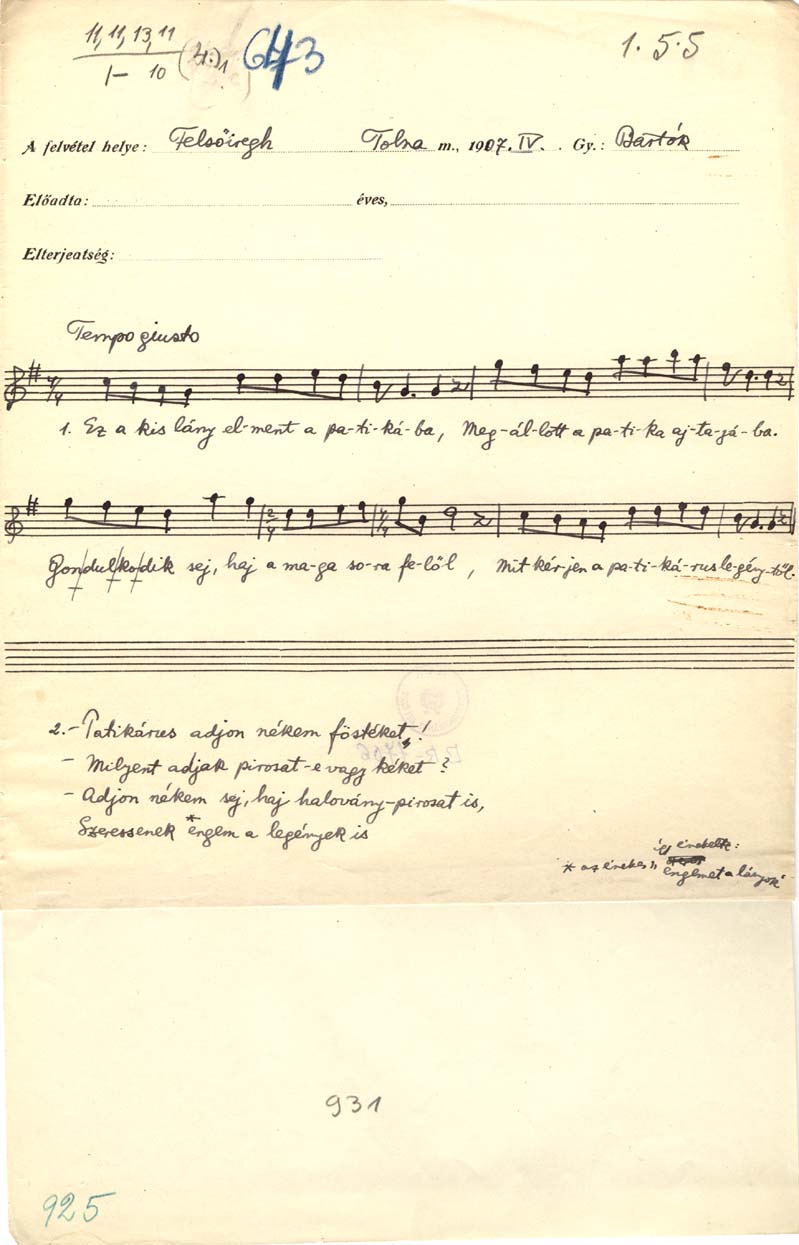 11, 11, 13, 11 643 1. 5. 5
1– 10 (4.) 1
A felvétel helye: Felsőiregh Tolna m., 1907. IV. Gy.: Bartók
Előadta: éves,
Elterjeatség:
Tempo giusto
1. Ez a kis lány el-ment a pa-ti-ká-ba, Meg-ál-lott a pa-ti-ka aj-ta-já-ba.
2/4 4/4
Gondulkodik sej, haj a ma-ga so-ra fe-löl, Mit kér-jen a pa-ti-ká-rus le-gény-töl.
2.– Patikárus adjon nékem föstéket!
– Milyent adjak pirosat-e vagy kéket?
– Adjon nékem sej, haj halovány-pirosat is,
Szeressenek *engem a legények is
* az énekes így énekelte:
engemet a lányok
931
925